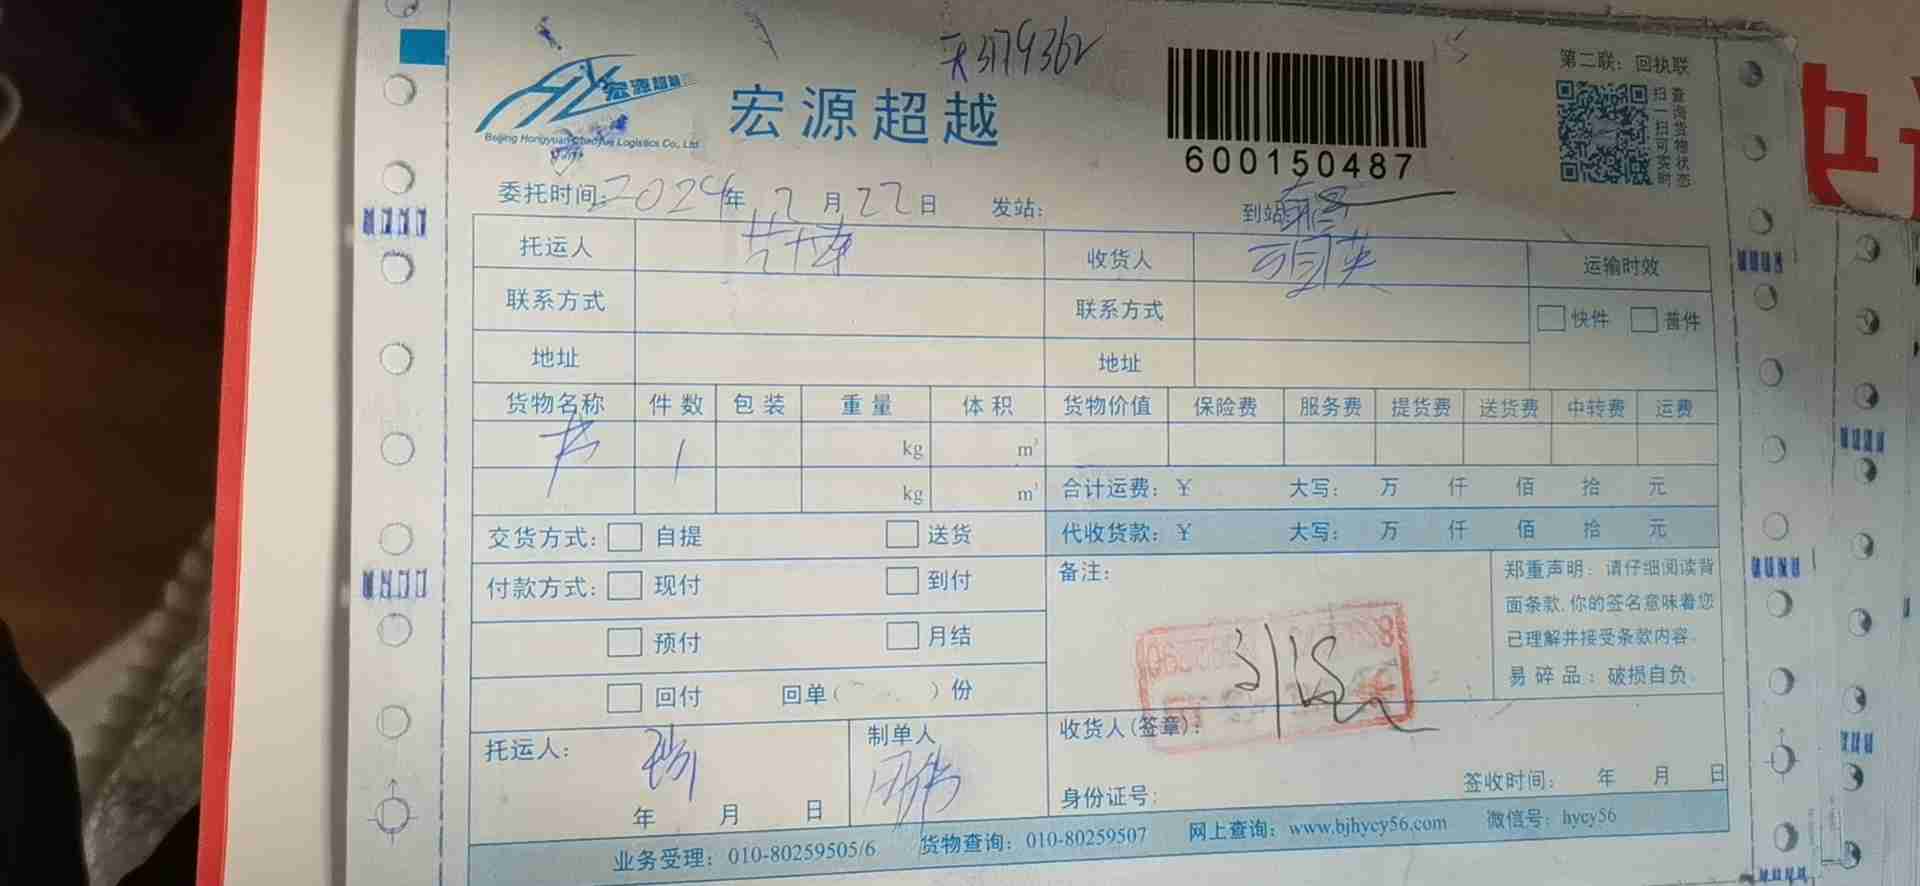 天3179362
15
宏源超越
Beijing Hongyuan Chaoyue Logistics Co., Ltd
宏源超越
600150487
第二联：回执联
扫一扫可实时
查询货物状态
委托时间：2024年 2月22日 发站： 到站
托运人 收货人 运输时效
联系方式 联系方式 快件 普件
地址 地址
货物名称 件数 包装 重量 体积 货物价值 保险费 服务费 提货费 送货费 中转费 运费
书 1 kg m³
kg m³ 合计运费：¥ 大写： 万 仟 佰 拾 元
交货方式： 自提 送货 代收货款：¥ 大写： 万 仟 佰 拾 元
付款方式： 现付 到付 备注：
预付 月结
回付 回单（ ）份
郑重声明：请仔细阅读背
面条款,你的签名意味着您
已理解并接受条款内容。
易碎品：破损自负。
托运人： 制单人 收货人(签章)：
年 月 日 身份证号： 签收时间： 年 月 日
业务受理：010-80259505/6 货物查询：010-80259507 网上查询：www.bjhycy56.com 微信号：hycy56